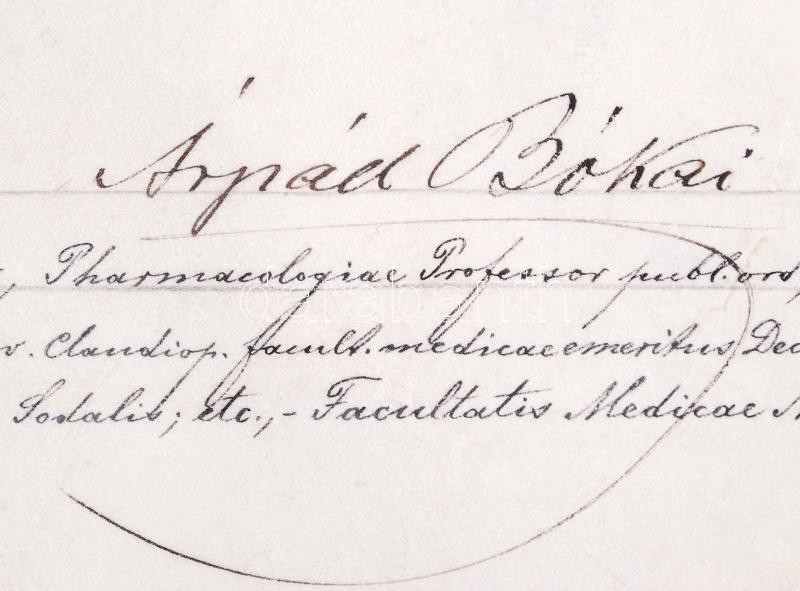 Árpád Bókai
Pharmacologiae Professor publ. ord,
Claudiop. facult. medicae emeritus
Sodalis; etc., - Facultatis Medicae